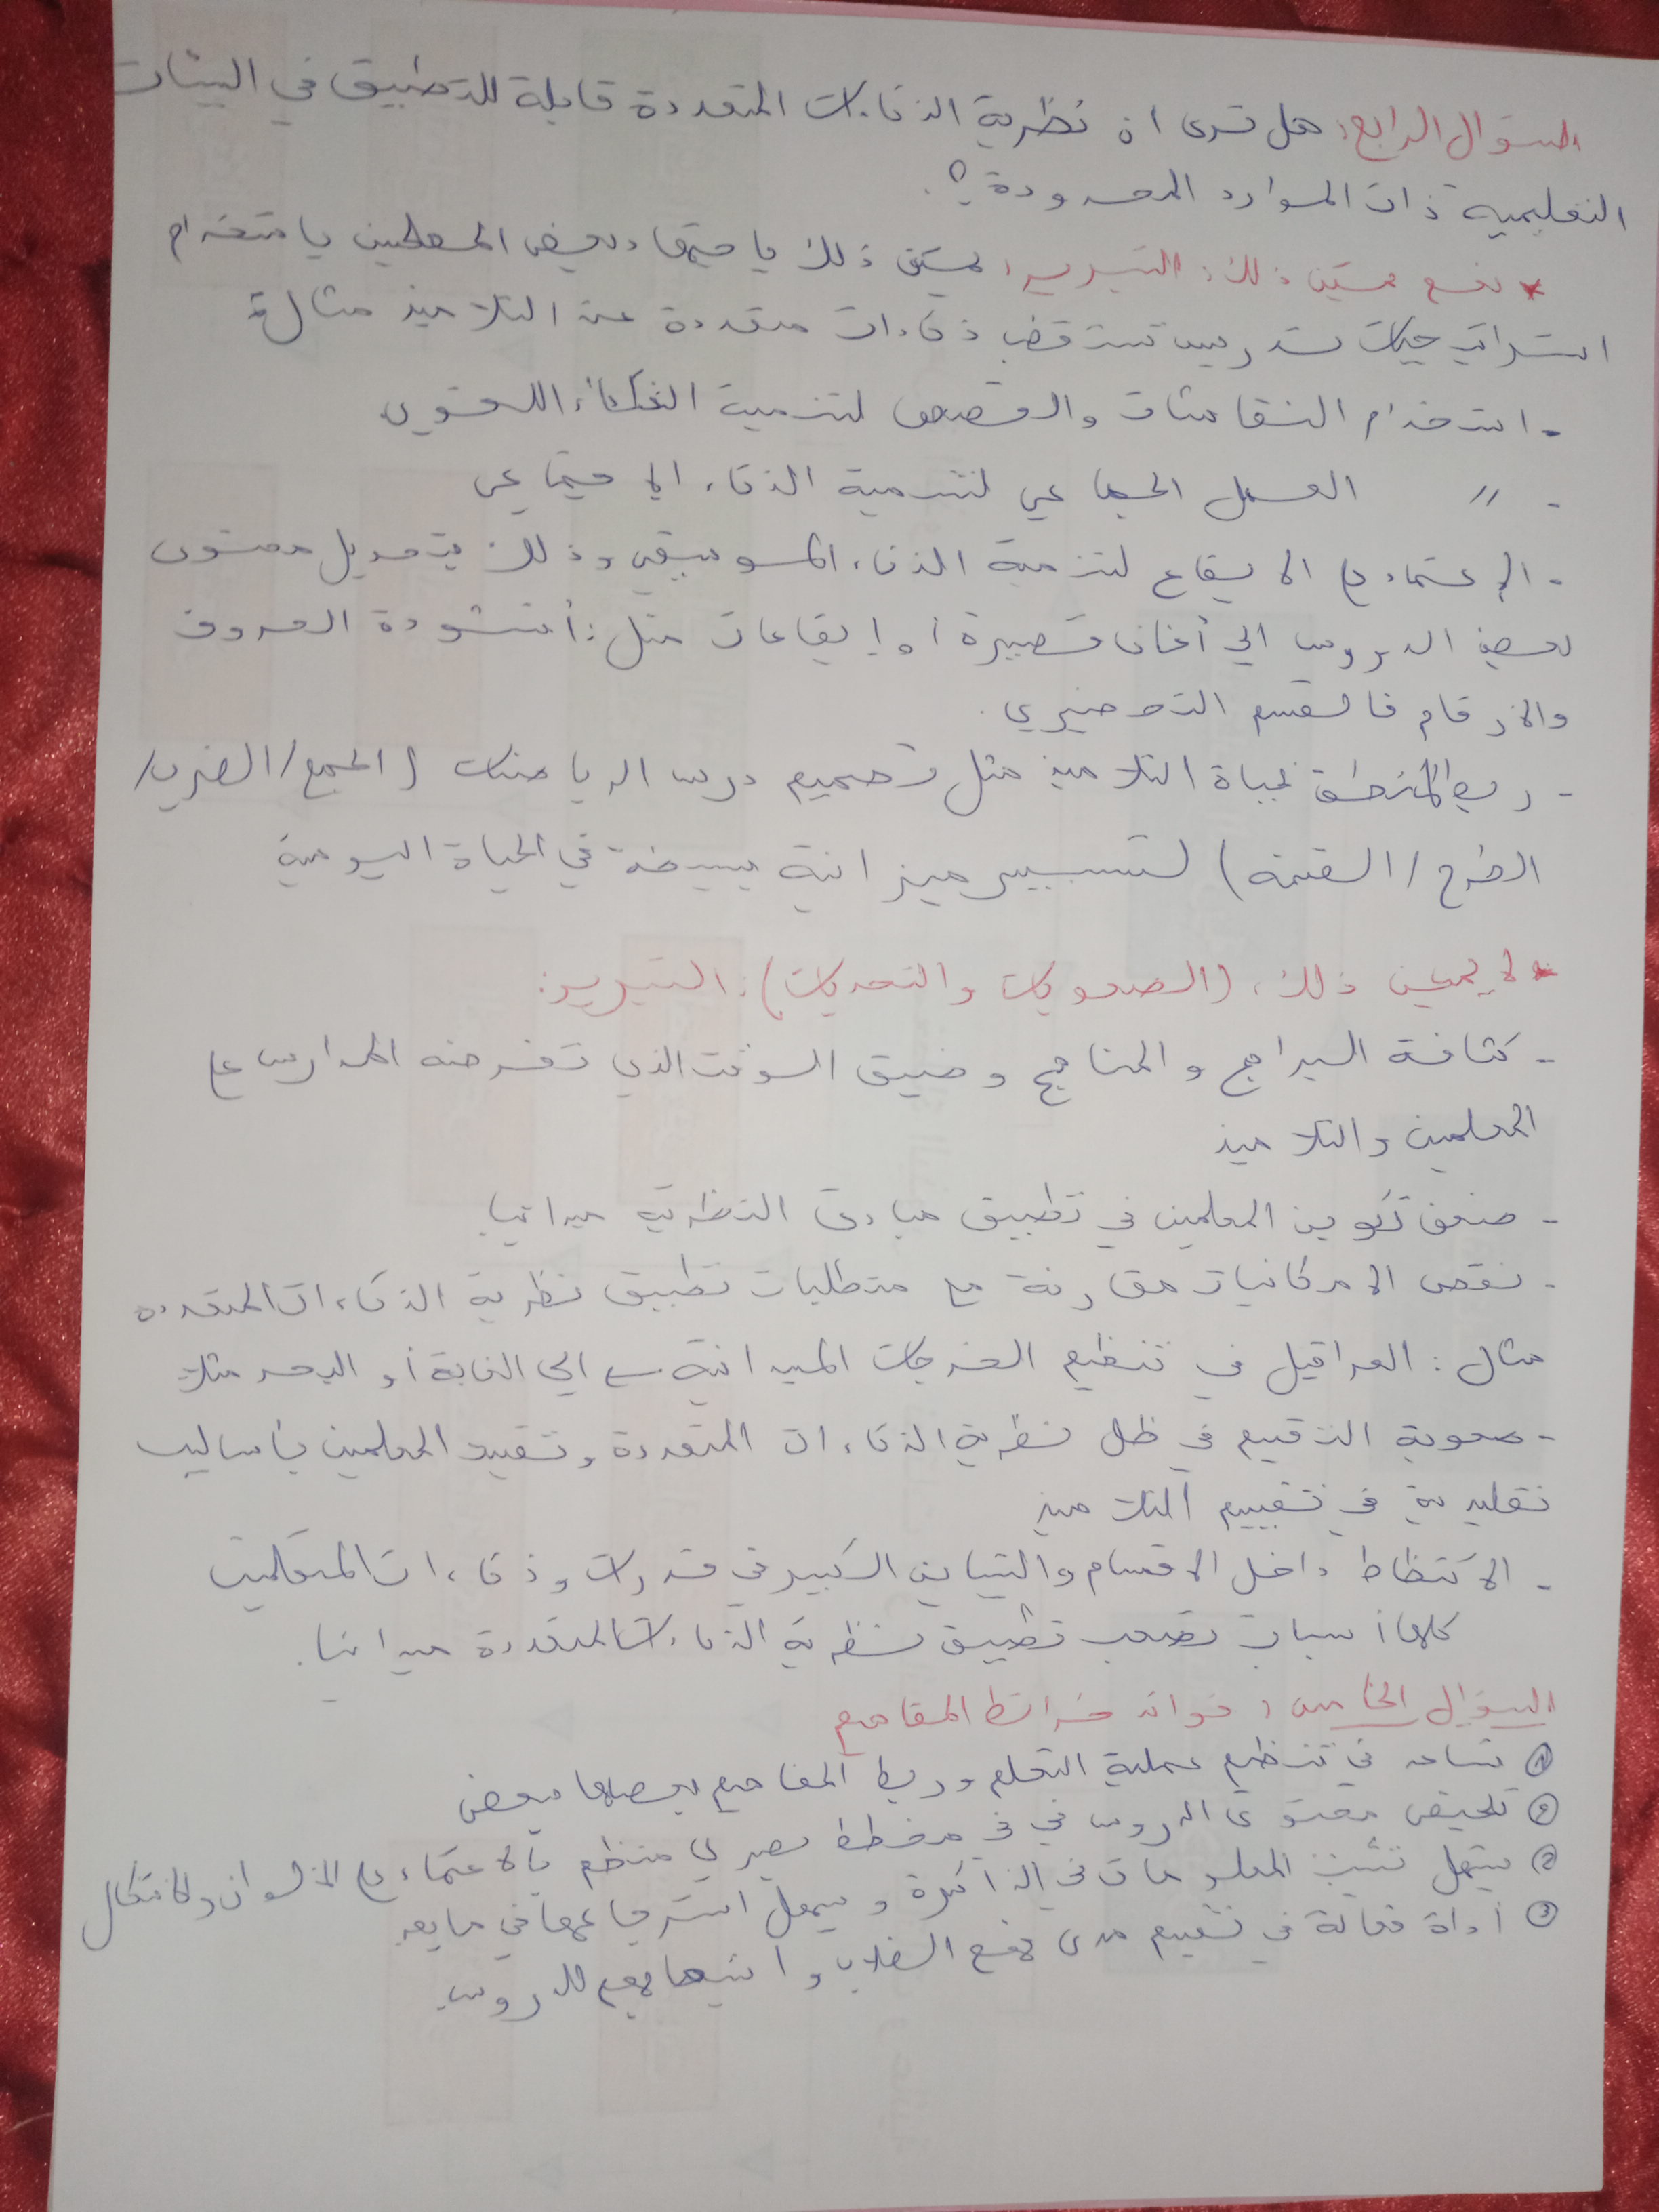 السؤال الرابع: هل ترى ان نظرية الذكاءات المتعددة قابلة للتطبيق في البيئات
التعليمية ذات الموارد المحدودة؟.
* نعم يمكن ذلك: التبرير: يمكن ذلك باجتهاد بعض المعلمين باستخدام
استراتيجيات تدريس تستقطب ذكاءات متعددة عند التلاميذ مثال:
- استخدام النقاشات والقصص لتنمية الذكاء اللغوي
- // العمل الجماعي لتنمية الذكاء الاجتماعي
- الإعتماد على الايقاع لتنمية الذكاء الموسيقي وذلك بتحويل محتوى
بعض الدروس الى أغاني قصيرة أو إيقاعات مثل: أنشودة الحروف
والارقام فالقسم التحضيري.
- ربط المنطق بحياة التلاميذ مثل تصميم درس الرياضيات (الجمع/الضرب/
الطرح/القسمة) لتسيير ميزانية بسيطة في الحياة اليومية
* لا يمكن ذلك، (الصعوبات والتحديات): التبرير:
- كثافة البرامج والمناهج وضيق الوقت الذي تفرضه المدارس على
المعلمين والتلاميذ
- ضعف تكوين المعلمين في تطبيق مبادئ النظرية ميدانيا.
- نقص الامكانيات مقارنة مع متطلبات تطبيق نظرية الذكاءات المتعددة
مثال: العراقيل في تنظيم الخرجات الميدانية الى الغابة أو البحر مثلا
- صعوبة التقييم في ظل نظرية الذكاءات المتعددة وتقييد المعلمين بأساليب
تقليدية في تقييم التلاميذ
- الاكتظاظ داخل الاقسام والتباين الكبير في قدرات وذكاءات المتعلمين
كلها أسباب تصعب تطبيق نظرية الذكاءات المتعددة ميدانيا.
السؤال الخامس: فوائد خرائط المفاهيم
① تساعد في تنظيم عملية التعلم وربط المفاهيم بعضها ببعض
② تلخيص محتوى الدروس في في مخطط بصري منظم بالاعتماد على الالوان والاشكال
② يسهل تثبيت المعلومات في الذاكرة ويسهل استرجاعها في ما بعد
③ أداة فعالة في تقييم مدى فهم الطلاب واستيعابهم للدروس.